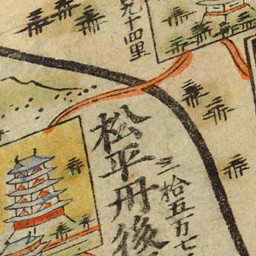 九十四里
三拾五万七
松平丹後